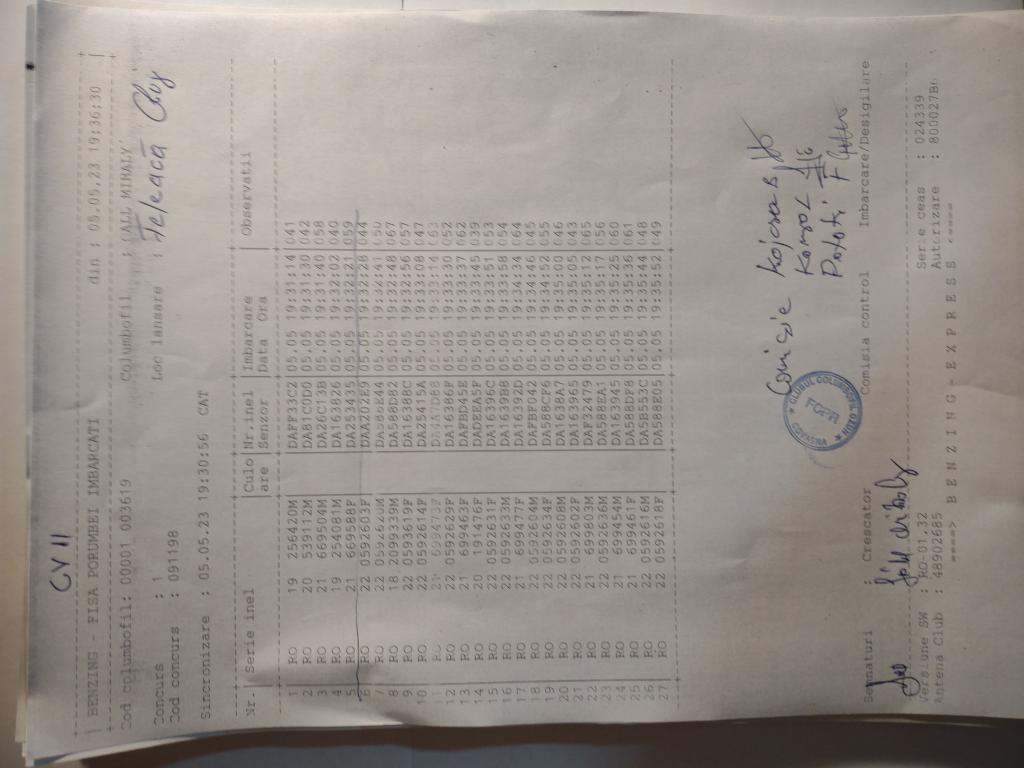 CV II
| BENZING - FISA PORUMBEI IMBARCATI din : 05.05.23 19:36:30 |
Cod columbofil: 00001 003619 Columbofil : GALL MIHALY
Concurs : 1 Loc lansare :
Cod concurs : 091198
Sincronizare : 05.05.23 19:30:56 CAT
Nr. | Serie inel |Culo|Nr.inel |Imbarcare | Observatii
are |Benzor |Data Ora
1 RO 19 256420M DAFF33C2 05.05 19:31:14 041
2 RO 20 539112M DA81C0D0 05.05 19:31:30 042
3 RO 21 669504M DA26C13B 05.05 19:31:40 058
4 RO 19 254081M DA163826 05.05 19:32:02 040
5 RO 21 669588F DA253435 05.05 19:32:21 059
6 RO 22 0592603F DAA202E9 05.05 19:32:28 044
7 RO 22 05.05
8 RO 18 2099339M DA568DB2 05.05 067
9 RO 22 0593619F DA16388C 05.05 19:32:56 057
10 RO 22 0592614F DA25415A 05.05 19:33:08 047
11 RO 05.05
12 RO 22 0592629F DA16386F 05.05 19:33:30 052
13 RO 21 699463F DAFBD45C 05.05 19:33:37 062
14 RO 20 191476F DADEEA5F 05.05 19:33:45 039
15 RO 22 0592631F DA16396C 05.05 19:33:51 053
16 RO 22 0592633M DA1639B8 05.05 19:33:58 054
17 RO 21 699477F DA16392D 05.05 19:34:34 064
18 RO 22 0592604M DAFBF04D 05.05 19:34:46 045
19 RO 22 0592634F DA588CF6 05.05 19:34:52 055
20 RO 22 0592608M DA1638A7 05.05 19:35:00 046
21 RO 22 0592602F DA163965 05.05 19:35:05 043
22 RO 21 699803M DAF32479 05.05 19:35:12 065
23 RO 22 0592636M DA588EA1 05.05 19:35:17 056
24 RO 21 699454M DA163945 05.05 19:35:25 060
25 RO 21 699461F DA588DF8 05.05 19:35:36 061
26 RO 22 0592616M DA5B553C 05.05 19:35:44 048
27 RO 22 0592618F DA588E05 05.05 19:35:52 049
Comisie
Semnaturi : Crescator Comisia control Imbarcare/Desigilare
COVASNA
FCPR
Gáll Mihály
Versiune SW : RO-01.32 Serie ceas : 024339
Antena Club : 48902685 Autorizare : 800027B
====> B E N Z I N G - E X P R E S S <====